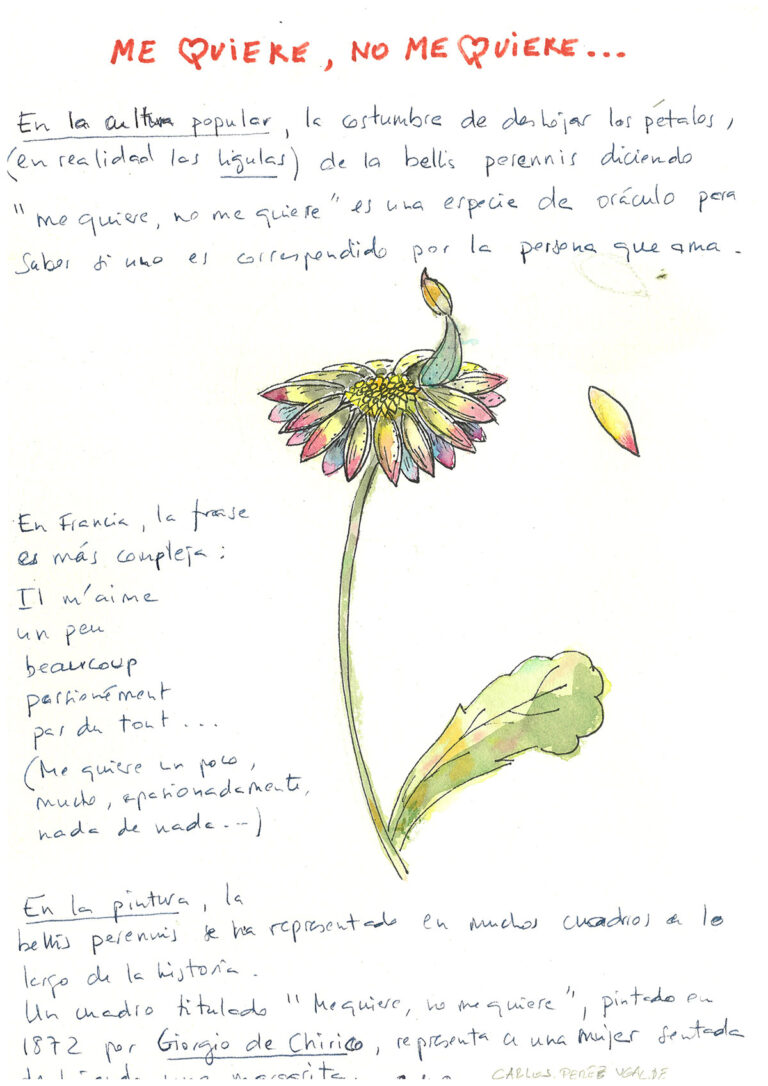 ME QUIERE, NO ME QUIERE...
En la cultura popular, la costumbre de deshojar los pétalos,
(en realidad las lígulas) de la bellis perennis diciendo
"me quiere, no me quiere" es una especie de oráculo para
saber si uno es correspondido por la persona que ama.
En Francia, la frase
es más compleja:
Il m'aime
un peu
beaucoup
passionément
pas du tout...
(Me quiere un poco,
mucho, apasionadamente,
nada de nada...)
En la pintura, la
bellis perennis se ha representado en muchos cuadros a lo
largo de la historia.
Un cuadro titulado "Me quiere, no me quiere", pintado en
1872 por Giorgio de Chirico, representa a una mujer sentada
una margarita.
CARLOS PEREZ UGALDE